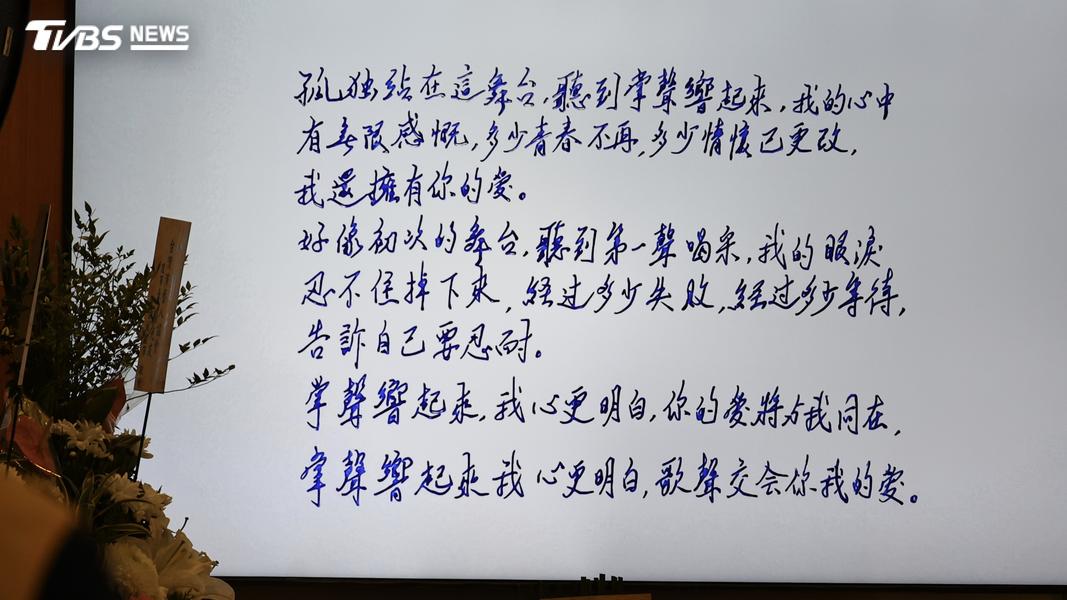 TVBS NEWS
孤独站在這舞台,聽到掌聲響起來,我的心中
有無限感慨,多少青春不再,多少情懷已更改,
我還擁有你的愛。
好像初次的舞台,聽到第一聲喝采,我的眼淚
忍不住掉下來,经过多少失败,经过多少等待,
告訴自己要忍耐。
掌聲響起來,我心更明白,你的愛將与我同在,
掌聲響起來我心更明白,歌聲交会你我的愛。